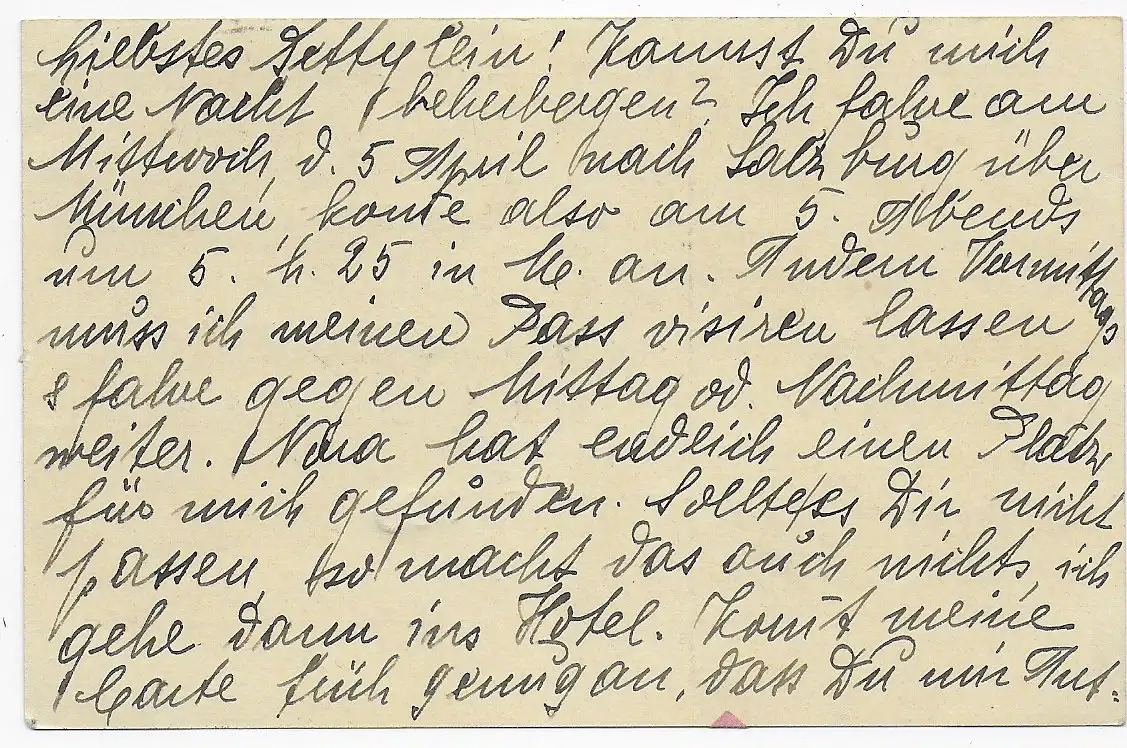 Liebstes Dettylein! Kannst Du mich
eine Nacht beherbergen? Ich fahre am
Mittwoch, d. 5 April nach Salzburg über
München, kome also am 5. Abends
um 5. h. 25 in M. an. Andern Vormittags
muss ich meinen Pass visiren lassen
& fahre gegen Mittag od. Nachmittag
weiter. Nora hat endlich einen Platz
für mich gefunden. Sollte es Dir nicht
passen, so macht das auch nichts, ich
gehe dann ins Hotel. Komt meine
Carte früh genug an, dass Du mir Ant=